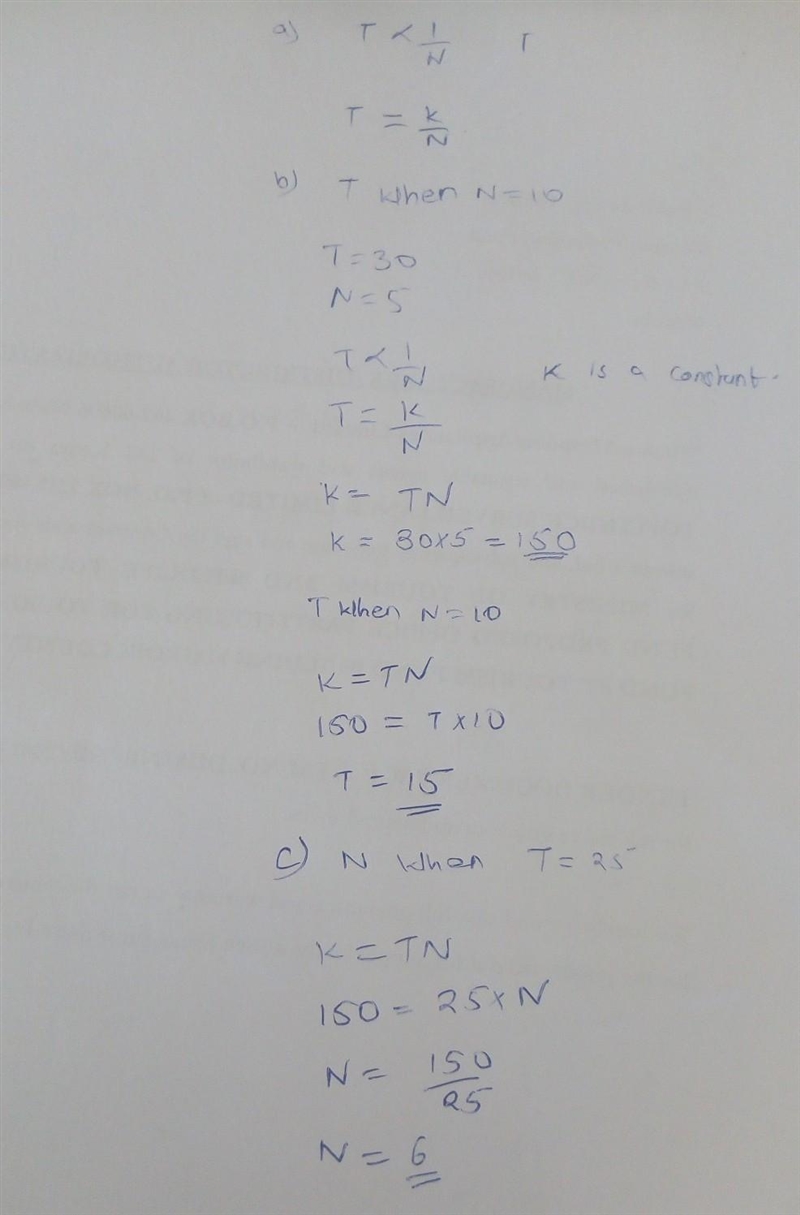 a) T ∝ 1/N Γ
T = K/N
b) T when N=10
T=30
N=5
T ∝ 1/N K is a constant.
T = K/N
K = TN
K = 30×5 = 150
T when N=10
K = TN
150 = T×10
T = 15
C) N when T=25
K = TN
150 = 25×N
N = 150/25
N = 6